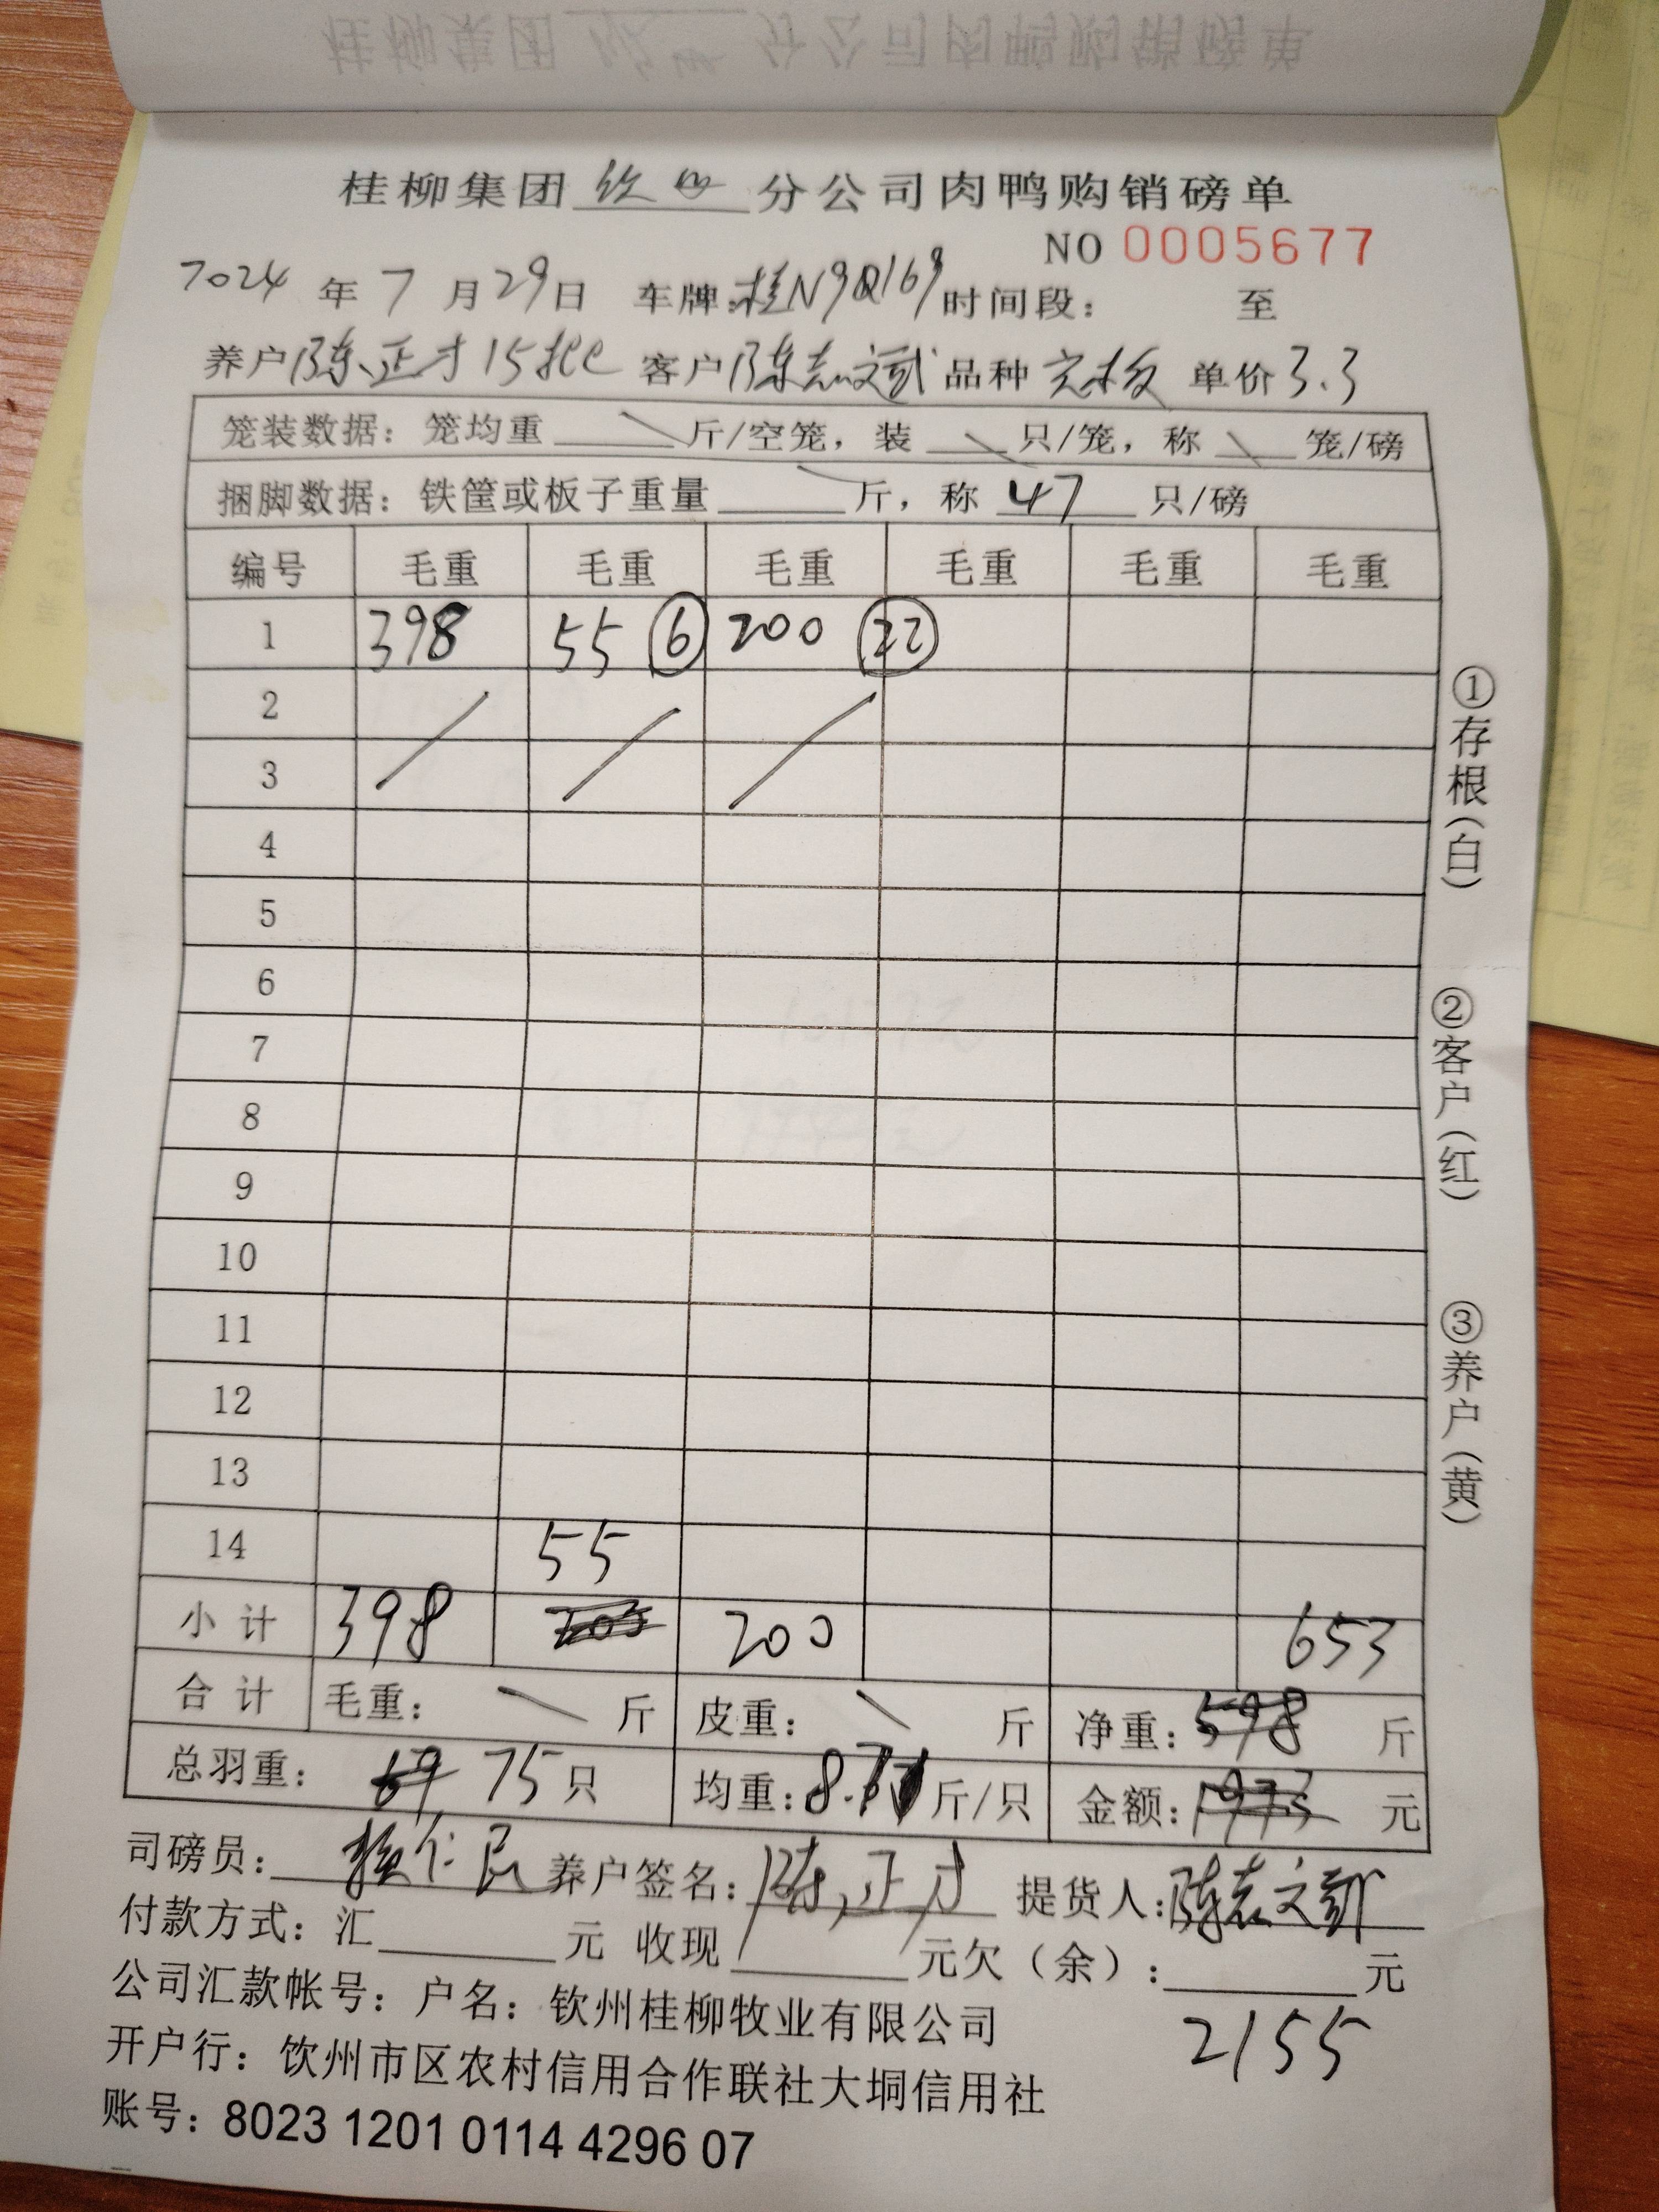 桂柳集团 钦州 分公司肉鸭购销磅单
NO 0005677
2024 年 7 月 29 日 车牌:桂N9Q169 时间段: 至
养户 陈正才 15批 客户 陈志文武 品种 光板 单价 3.3
笼装数据: 笼均重 \ 斤/空笼, 装 \ 只/笼, 称 \ 笼/磅
捆脚数据: 铁筐或板子重量 斤, 称 47 只/磅
编号 毛重 毛重 毛重 毛重 毛重 毛重
1 398 55 ⑥ 200 ㉒
2
3
4
5
6
7
8
9
10
11
12
13
14 55
小计 398 203 200 653
合计 毛重: \ 斤 皮重: \ 斤 净重: 598 斤
总羽重: 69 75 只 均重: 8.71 斤/只 金额: 1973 元
司磅员: 仁民 养户签名: 陈正才 提货人: 陈志文武
付款方式: 汇 元 收现 元欠(余): 元
2155
公司汇款帐号: 户名: 钦州桂柳牧业有限公司
开户行: 饮州市区农村信用合作联社大垌信用社
账号: 8023 1201 0114 4296 07
①存根(白)
②客户(红)
③养户(黄)